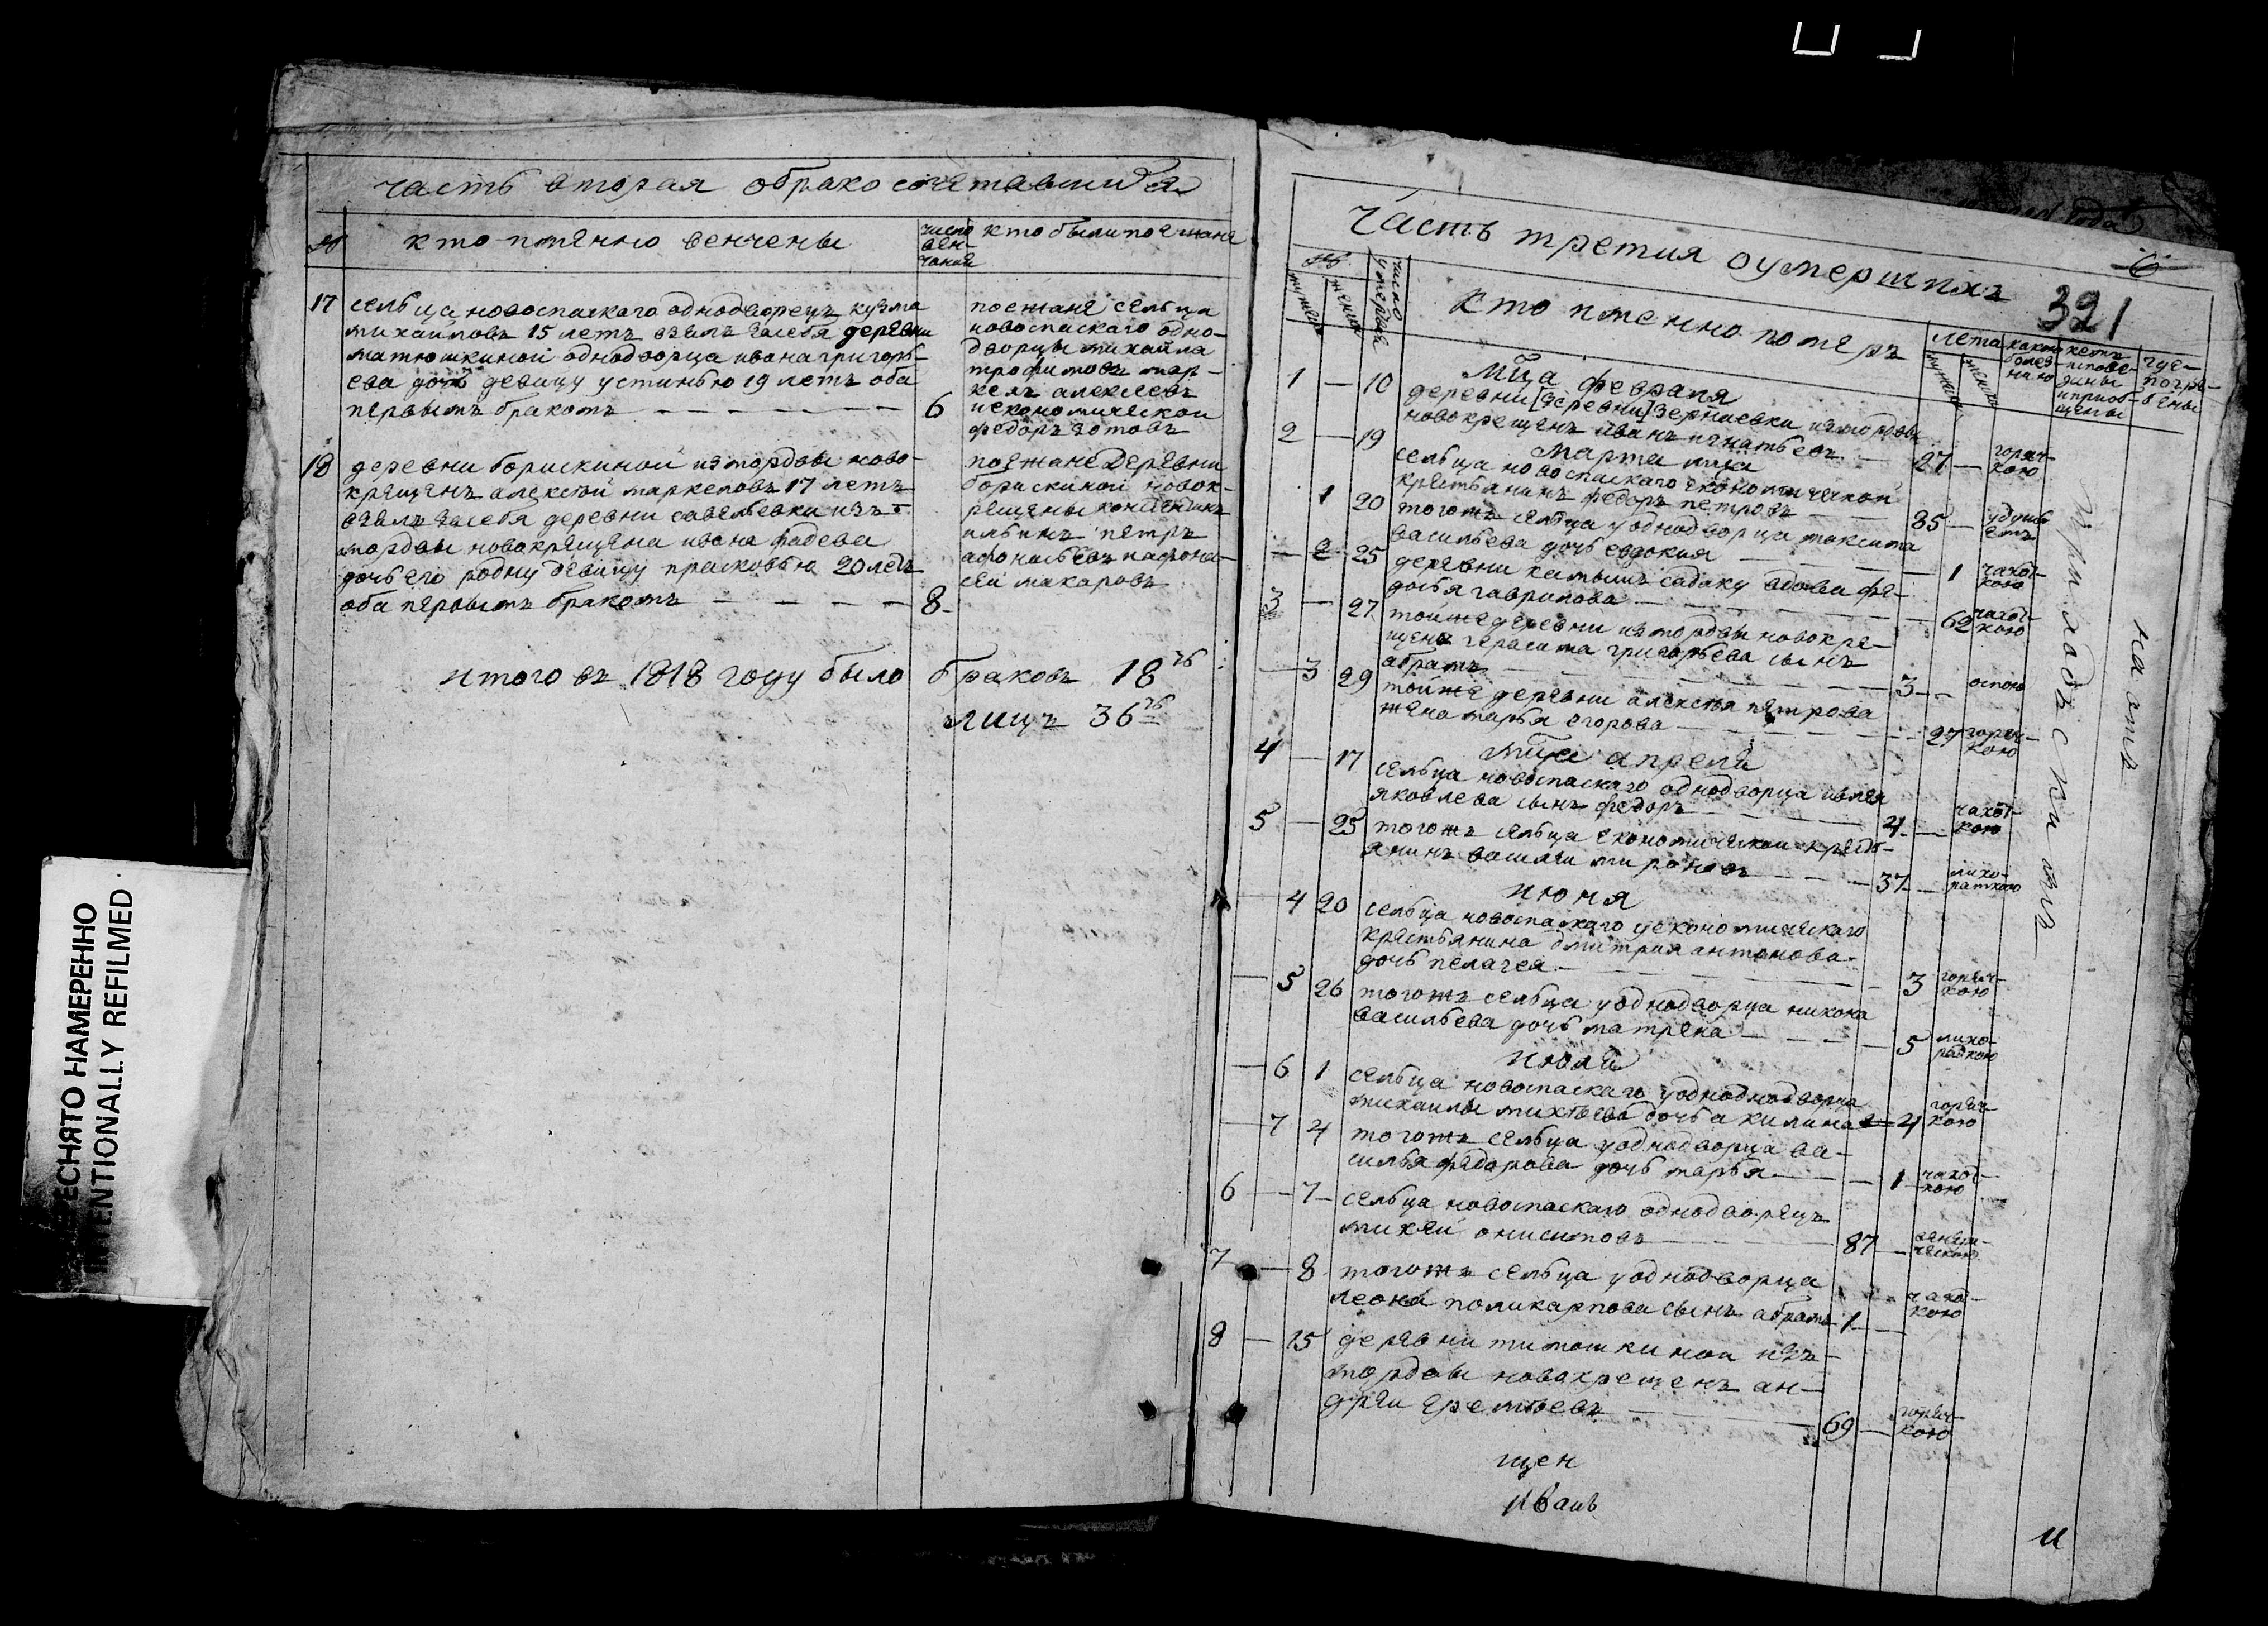 часть вторая обракосочетавшихся
№
кто имянно венчены
число вен-
чания
кто были поезжане
17
сельца новоспаскаго однодворецъ кузма
михаиловъ 15 летъ взялъ засебя деревни
матюшкиной однодворца ивана григорь-
ева дочь девицу устинью 19 летъ оба
первымъ бракомъ
6
поезжане сельца
новоспаскаго одно-
дворцы михаила
трофимовъ мар-
келъ алексеевъ
иекономической
федоръ зотовъ
18
деревни борискиной измордвы ново-
крещенъ алексей маркеловъ 17 летъ
взялъ засебя деревни савельевки изъ
мордвы новокрещена ивана фадеева
дочь его родну девицу прасковью 20 летъ
оба первымъ бракомъ
8
поезжане деревни
борискиной новок-
рещены
ильинъ петръ
афонасьевъ иафона-
сей макаровъ
итого въ 1818 году было браковъ 18
лицъ 36
ПЕРЕСНЯТО НАМЕРЕННО
INTENTIONALLY REFILMED
Часть третия оумершихъ
6
321
№
мужеска
женска
число
умертвия
кто именно померъ
лета
мужеска
женска
какою
болез-
нию
кемъ
испове-
даны
иприоб-
щены
где-
погре-
бены
Мца февраля
1 — 10 деревни [деревни] зернаевки измордвы
новокрещенъ иванъ игнатьевъ — 27 — горяч-
кою
марта мца
2 — 19 сельца новоспаскаго економической
крестьянинъ федоръ петровъ — 85 — удуш-
емъ
1 20 тогожъ сельца уоднодворца максима
васильева дочь евдокия — 1 чахот-
кою
— 2 25 деревни камышъ садаку вдова фе-
досья гаврилова — 62 чахот-
кою
3 — 27 тойже деревни измордвы новокре-
щена герасима григорьева сынъ
абрамъ — 3 — оспою
— 3 29 тойже деревни алексея петрова
жена марья егорова — 27 горяч-
кою
мца апреля
4 — 17 сельца новоспаскаго однодворца
яковлева сынъ федоръ — 4 — чахот-
кою
5 — 25 тогожъ сельца економической кресть-
янинъ василеи мироновъ — 37 — лихо-
раткою
июня
— 4 20 сельца новоспаскаго уекономическаго
крестьянина дмитрия антонова
дочь пелагея — 3 горяч-
кою
— 5 26 тогожъ сельца уоднодворца никона
васильева дочь матрена — 5 лихо-
радкою
июля
— 6 1 сельца новоспаскаго уоднодворца
михаилы михеева дочь акилина — 4 горяч-
кою
— 7 4 тогожъ сельца уоднодворца ва-
силья федорова дочь марья — 1 чахот-
кою
6 — 7 сельца новоспаскаго однодворецъ
михеи онисимовъ — 87 —
7 — 8 тогожъ сельца уоднодворца
леона поликарпова сынъ абрамъ 1 — чахо-
кою
8 — 15 деревни тимошкинои изъ
мордвы новокрещенъ ан-
дреи еремеевъ — 69 — горяч-
кою
приходскимъ
щен
иванъ
и